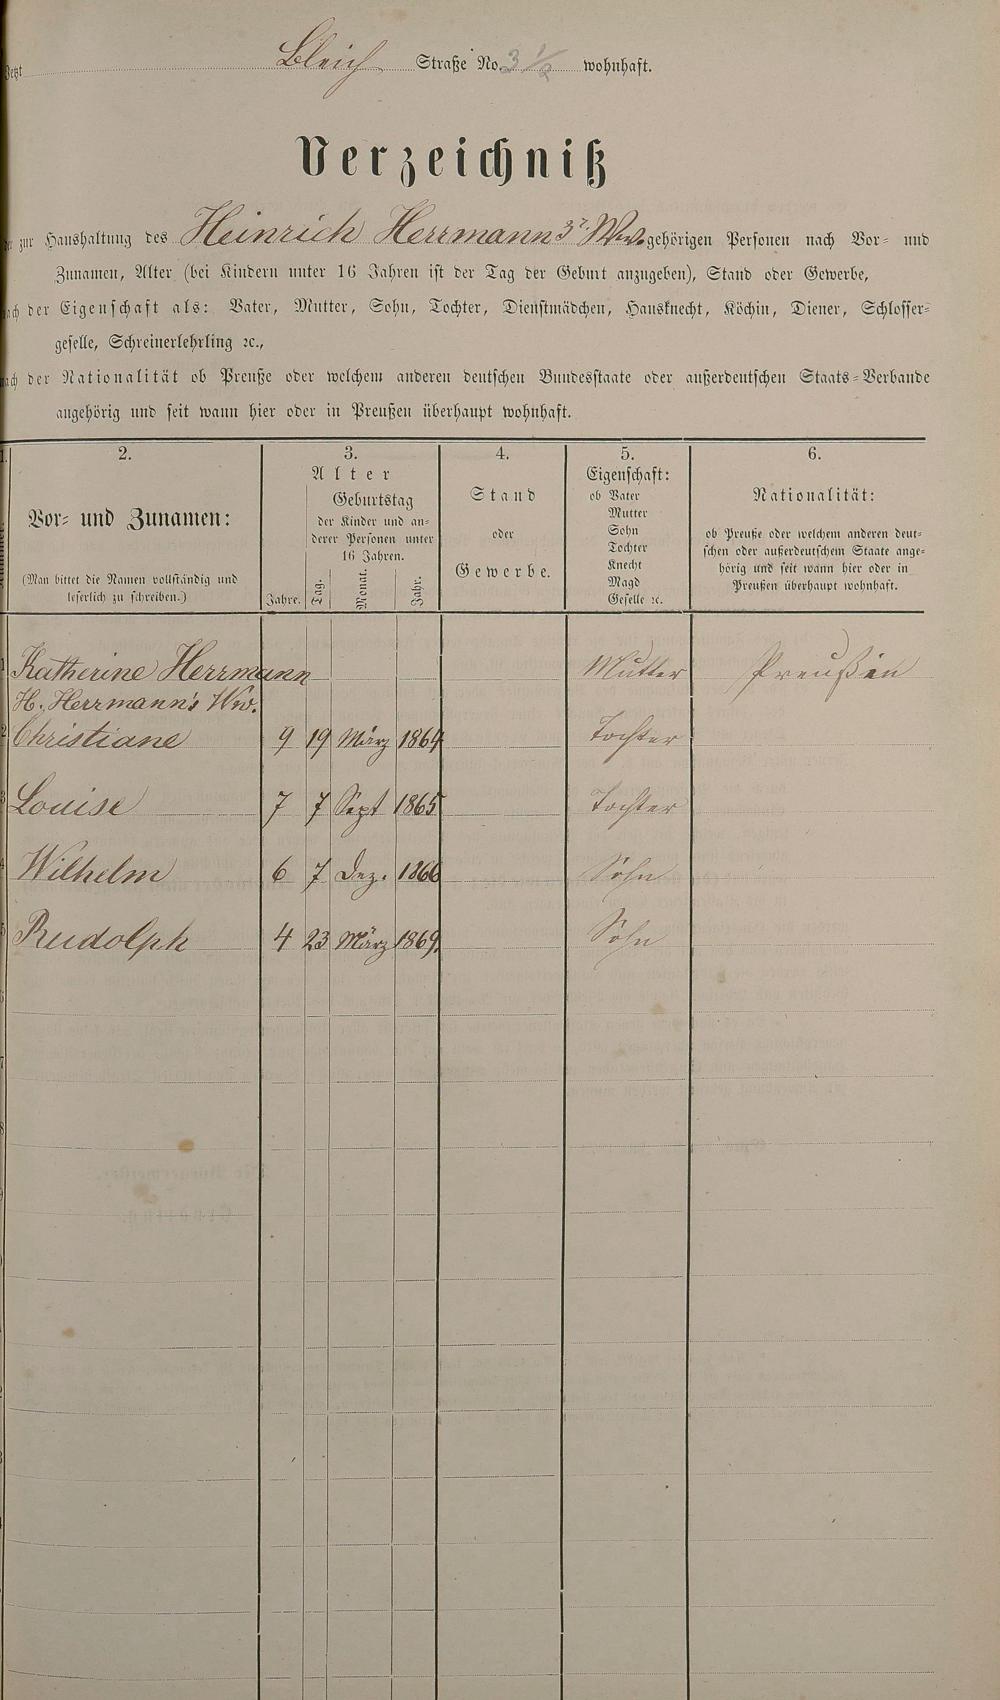 Jetzt Bleich Straße No. 3 1/2 wohnhaft.
Verzeichniß
der zur Haushaltung des Heinrich Herrmann 3r Ww. gehörigen Personen nach Vor- und
Zunamen, Alter (bei Kindern unter 16 Jahren ist der Tag der Geburt anzugeben), Stand oder Gewerbe,
nach der Eigenschaft als: Vater, Mutter, Sohn, Tochter, Dienstmädchen, Hausknecht, Köchin, Diener, Schlosser-
geselle, Schreinerlehrling ꝛc.,
nach der Nationalität ob Preuße oder welchem anderen deutschen Bundesstaate oder außerdeutschen Staats-Verbande
angehörig und seit wann hier oder in Preußen überhaupt wohnhaft.
1. 2. 3. 4. 5. 6.
Vor- und Zunamen:
(Man bittet die Namen vollständig und
leserlich zu schreiben.)
Alter
Geburtstag
der Kinder und an-
derer Personen unter
16 Jahren.
Jahre. Tag. Monat. Jahr.
Stand
oder
Gewerbe.
Eigenschaft:
ob Vater
Mutter
Sohn
Tochter
Knecht
Magd
Geselle ꝛc.
Nationalität:
ob Preuße oder welchem anderen deut-
schen oder außerdeutschem Staate ange-
hörig und seit wann hier oder in
Preußen überhaupt wohnhaft.
1 Katherine Herrmann Mutter Preußen
H. Herrmann's Ww.
2 Christiane 9 19 März 1864 Tochter
3 Louise 7 7 Sept 1865 Tochter
4 Wilhelm 6 7 Dez. 1866 Sohn
5 Rudolph 4 23 März 1869. Sohn
6
7
8